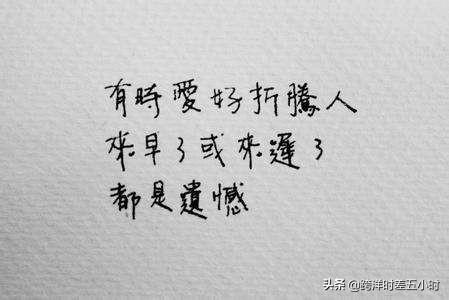 有時愛好折騰人
來早了或來遲了
都是遺憾
头条 @跨洋时差五小时